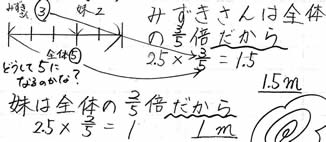 みずきさん ③ 妹2
全体⑤
どうして5に
なるのかな?
みずきさんは全体
の3/5倍だから
2.5 × 3/5 = 1.5
1.5m
妹は全体の2/5倍だから
2.5 × 2/5 = 1
1m